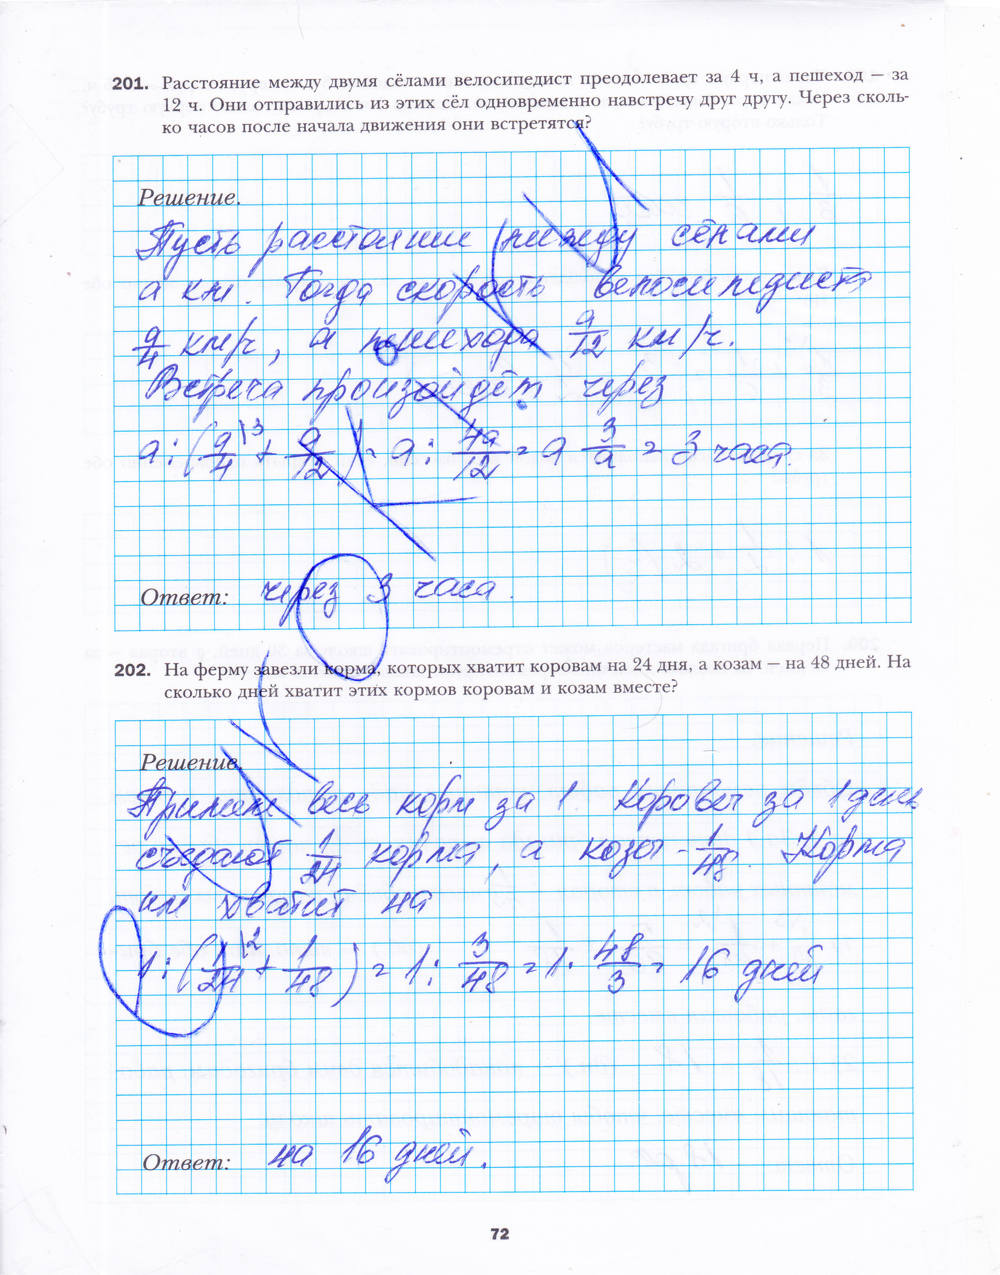 201. Расстояние между двумя сёлами велосипедист преодолевает за 4 ч, а пешеход — за
12 ч. Они отправились из этих сёл одновременно навстречу друг другу. Через сколь-
ко часов после начала движения они встретятся?
Решение.
Пусть расстояние между сёлами
a км. Тогда скорость велосипедиста
a/4 км/ч, а пешехода a/12 км/ч.
Встреча произойдёт через
a : (a/4 \3 + a/12) = a : 4a/12 = a 3/a = 3 часа.
Ответ: через 3 часа.
202. На ферму завезли корма, которых хватит коровам на 24 дня, а козам — на 48 дней. На
сколько дней хватит этих кормов коровам и козам вместе?
Решение.
Примем весь корм за 1. Коровы за 1 день
съедают 1/24 корма, а козы - 1/48. Корма
им хватит на
1 : (1/24 \2 + 1/48) = 1 : 3/48 = 1 · 48/3 = 16 дней
Ответ: на 16 дней.
72